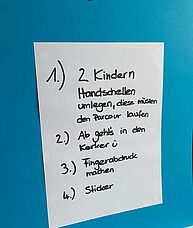 1.) 2 Kindern
Handschellen
umlegen, diese müssen
den Parcour laufen
2.) Ab geht's in den
Kerker ü
3.) Fingerabdruck
machen
4.) Sticker